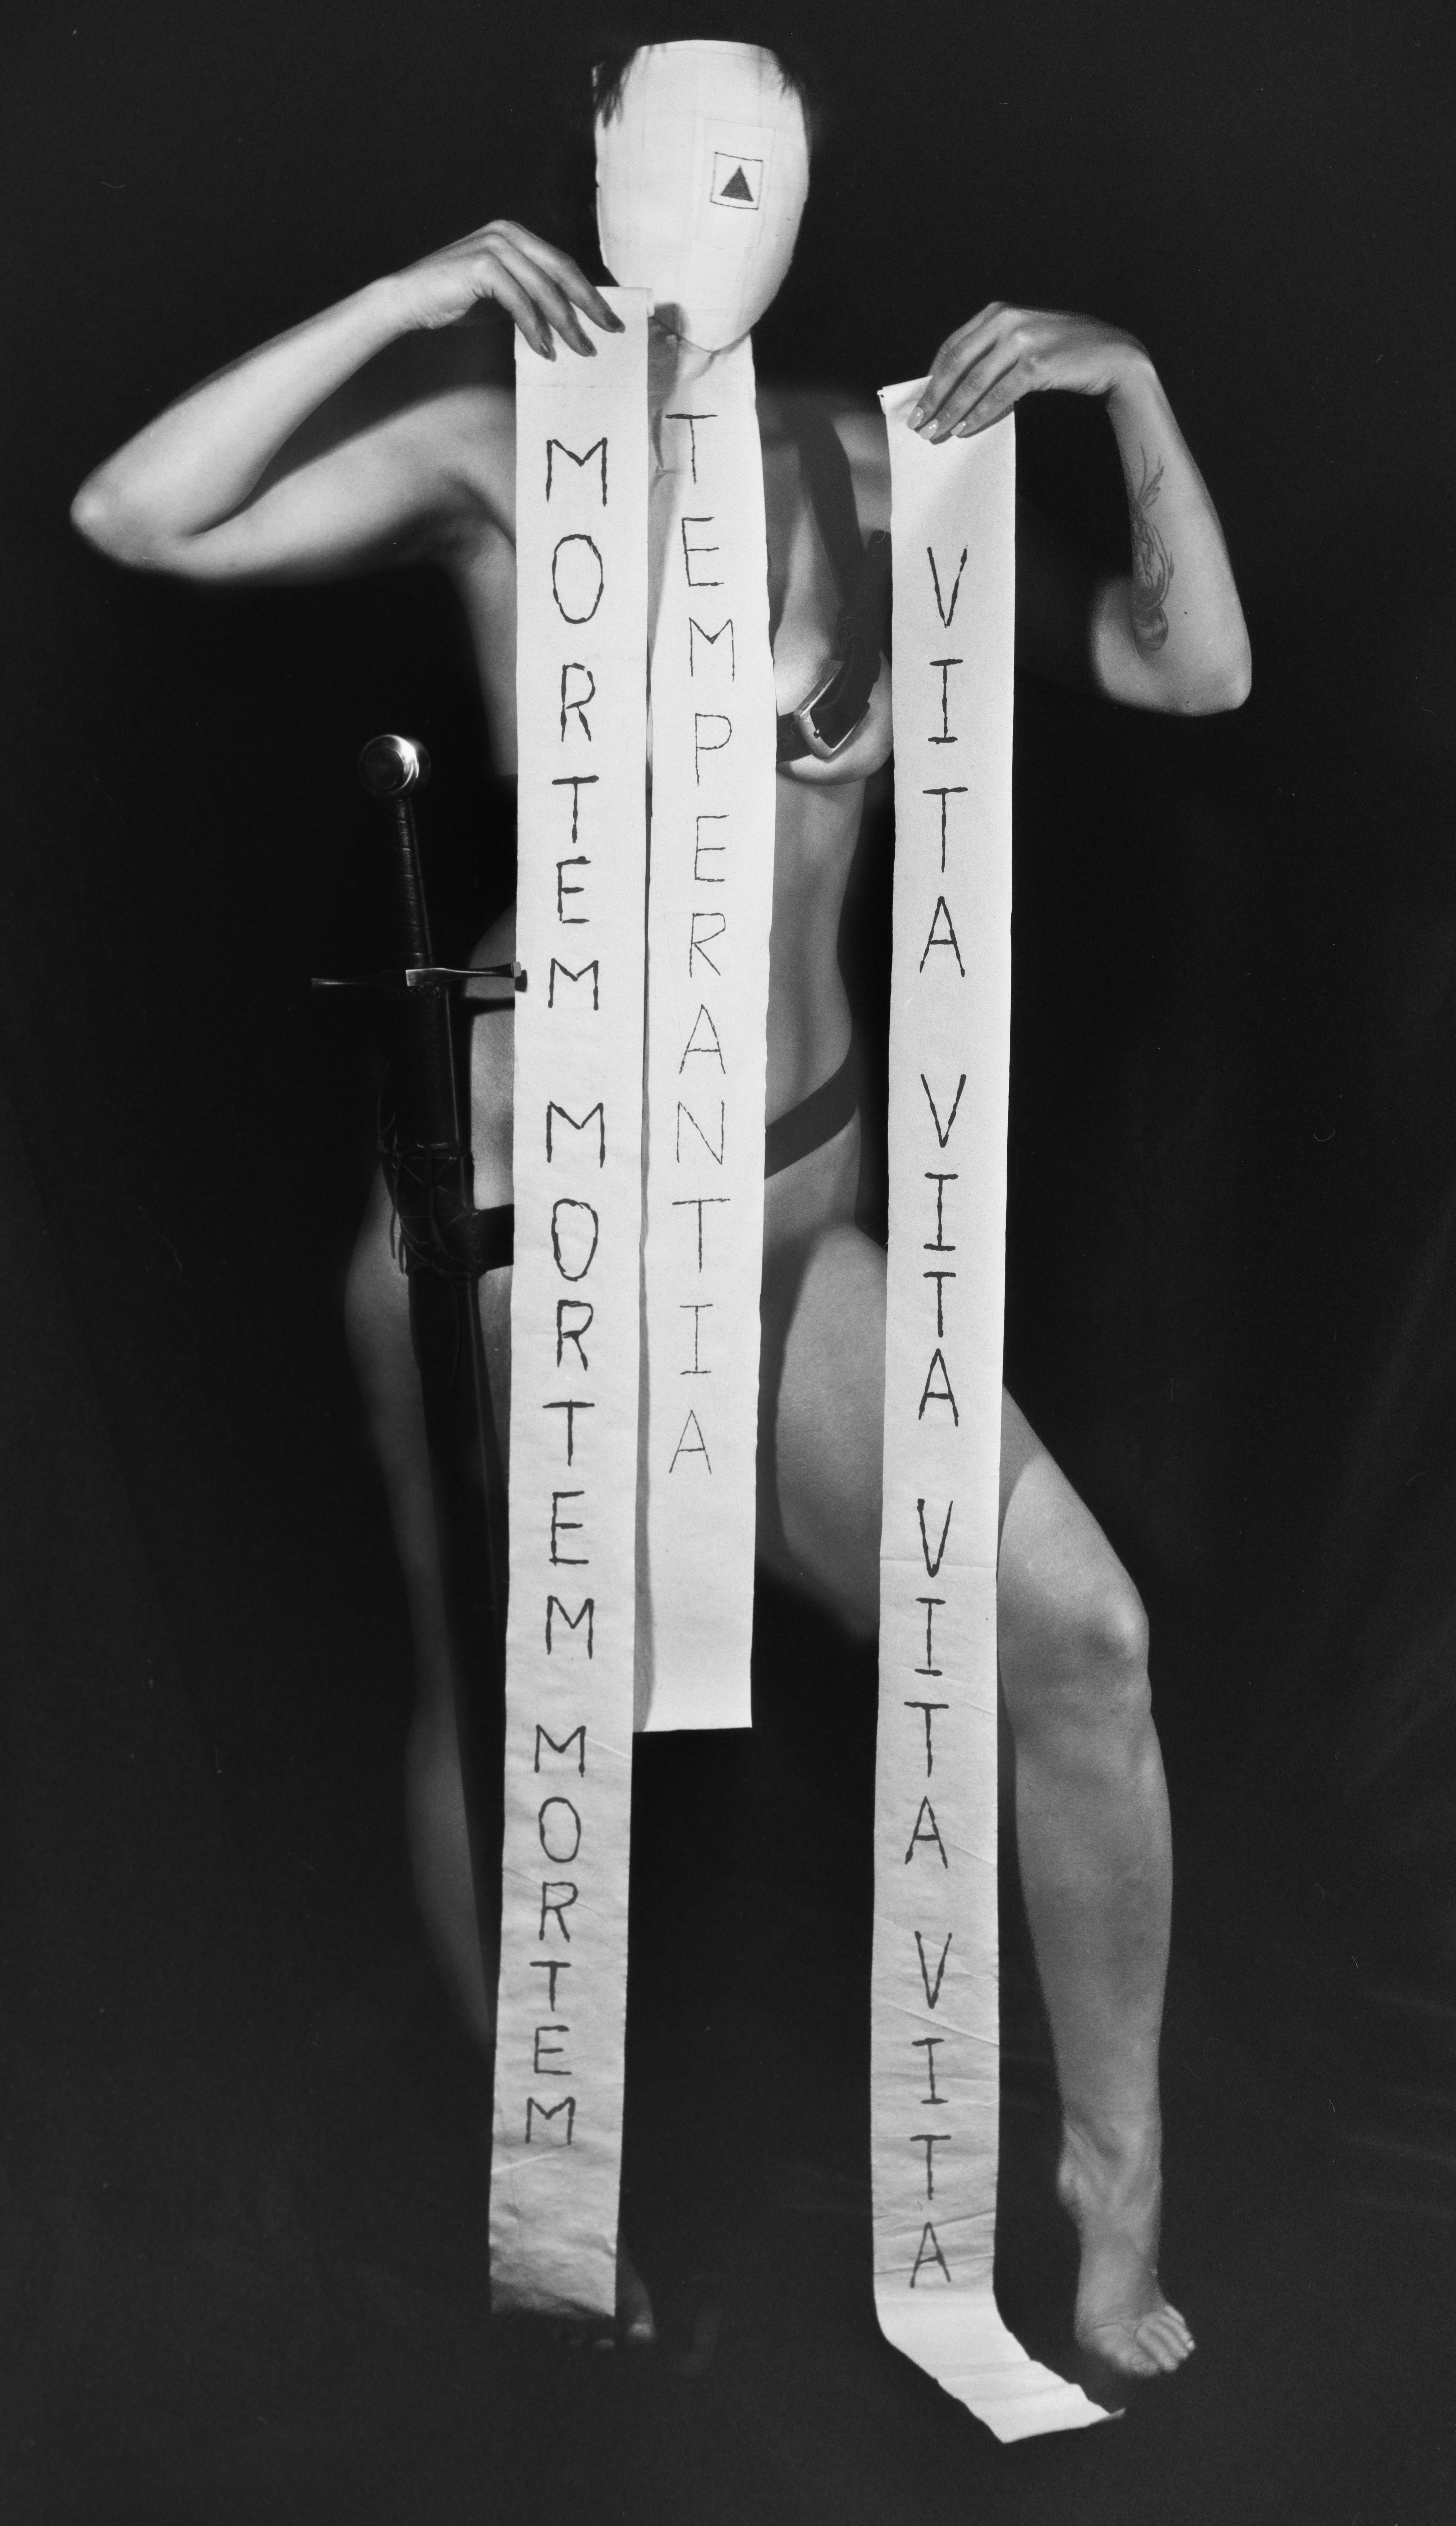 MORTEM MORTEM MORTEM
TEMPERANTIA
VITA VITA VITA VITA